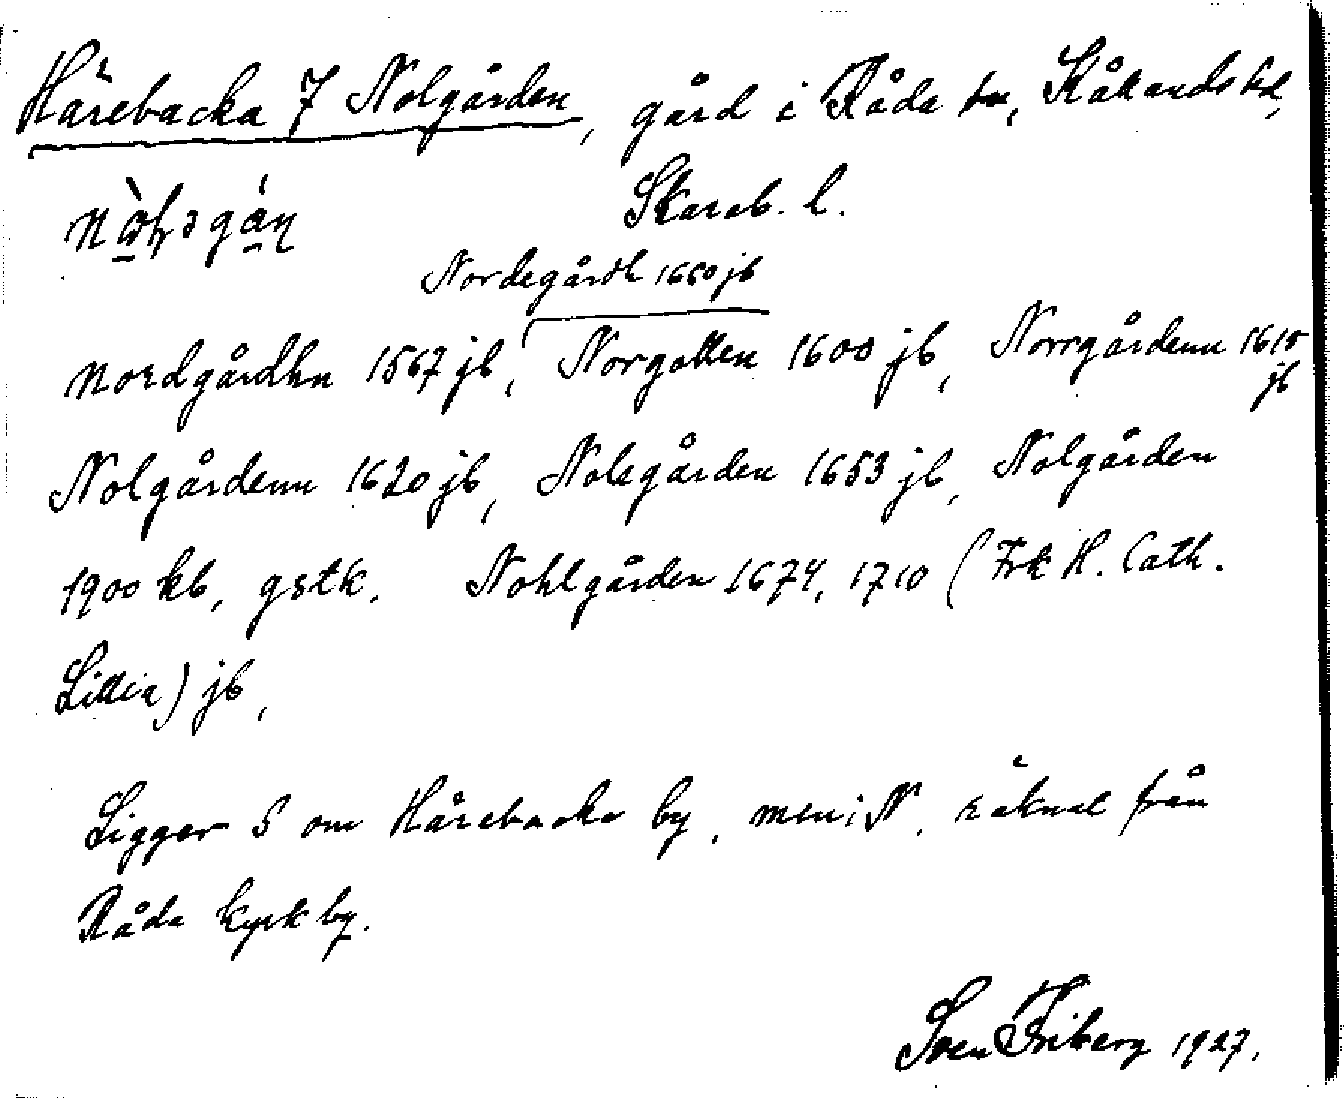 Härebacka 7 Nolgården, gård i Råda sn, Kållands hd,
Skarab. l.
Nordegårdh 1660 jb
Nordgårdhn 1567 jb, Norgotten 1600 jb, Norrgårdenn 1615 jb
Nolgårdenn 1620 jb, Nolegården 1653 jb, Nolgården
1900 kb, gstk. Nohlgården 1674, 1710 (Frk H. Cath.
Lillia) jb,
Ligger S om Härebacka by, men i N. räknat från
Råda kyrkby.
Sven Friberg 1927.